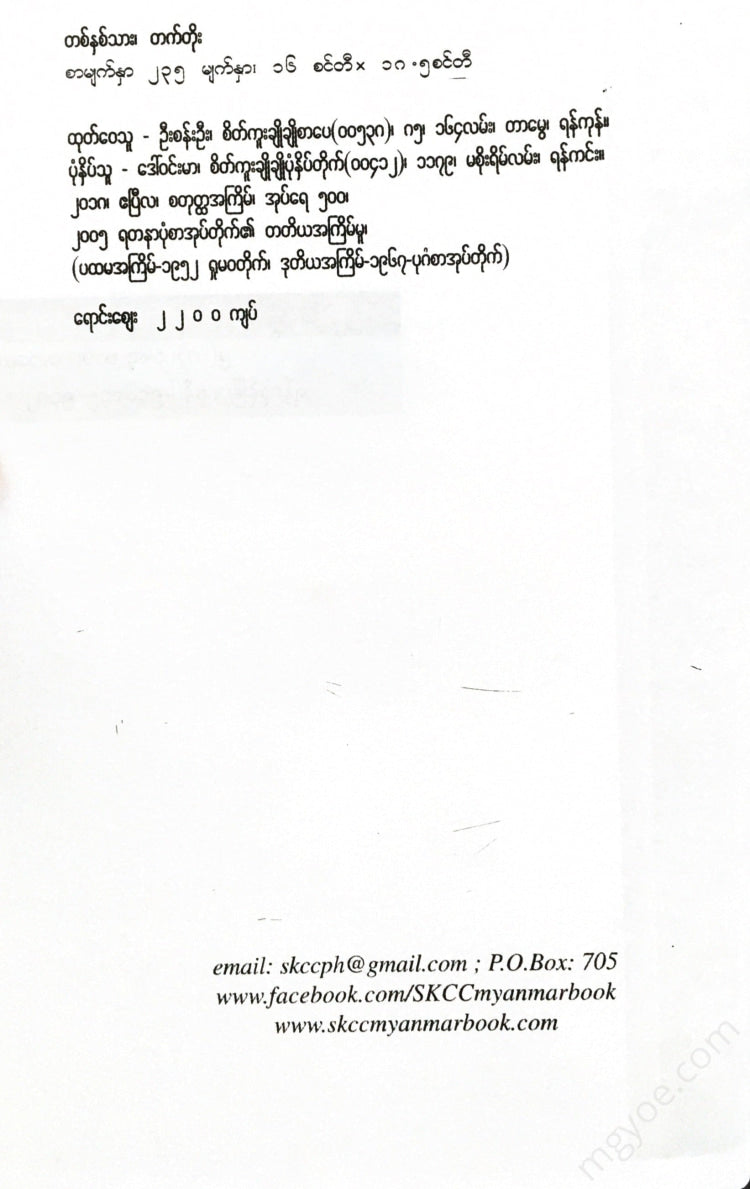 တစ်နှစ်သား၊ တက်တိုး
စာမျက်နှာ ၂၃၅ မျက်နှာ၊ ၁၆ စင်တီ× ၁၈.၅စင်တီ
ထုတ်ဝေသူ - ဦးစန်းဦး၊ စိတ်ကူးချိုချိုစာပေ(၀၀၅၃၈)၊ ၈၅၊ ၁၆၄လမ်း၊ တာမွေ၊ ရန်ကုန်။
ပုံနှိပ်သူ - ဒေါ်ဝင်းမာ၊ စိတ်ကူးချိုချိုပုံနှိပ်တိုက်(၀၀၄၁၂)၊ ၁၁၇၉၊ မစိုးရိမ်လမ်း၊ ရန်ကင်း။
၂၀၁၈၊ ဧပြီလ၊ စတုတ္ထအကြိမ်၊ အုပ်ရေ ၅၀၀၊
၂၀၀၅ ရတနာပုံစာအုပ်တိုက်၏ တတိယအကြိမ်မူ၊
(ပထမအကြိမ်-၁၉၅၂ ရှုမဝတိုက်၊ ဒုတိယအကြိမ်-၁၉၆၇-ပုဂံစာအုပ်တိုက်)
ရောင်းဈေး ၂၂၀၀ ကျပ်
email: skccph@gmail.com ; P.O.Box: 705
www.facebook.com/SKCCmyanmarbook
www.skccmyanmarbook.com
mgyoe.com